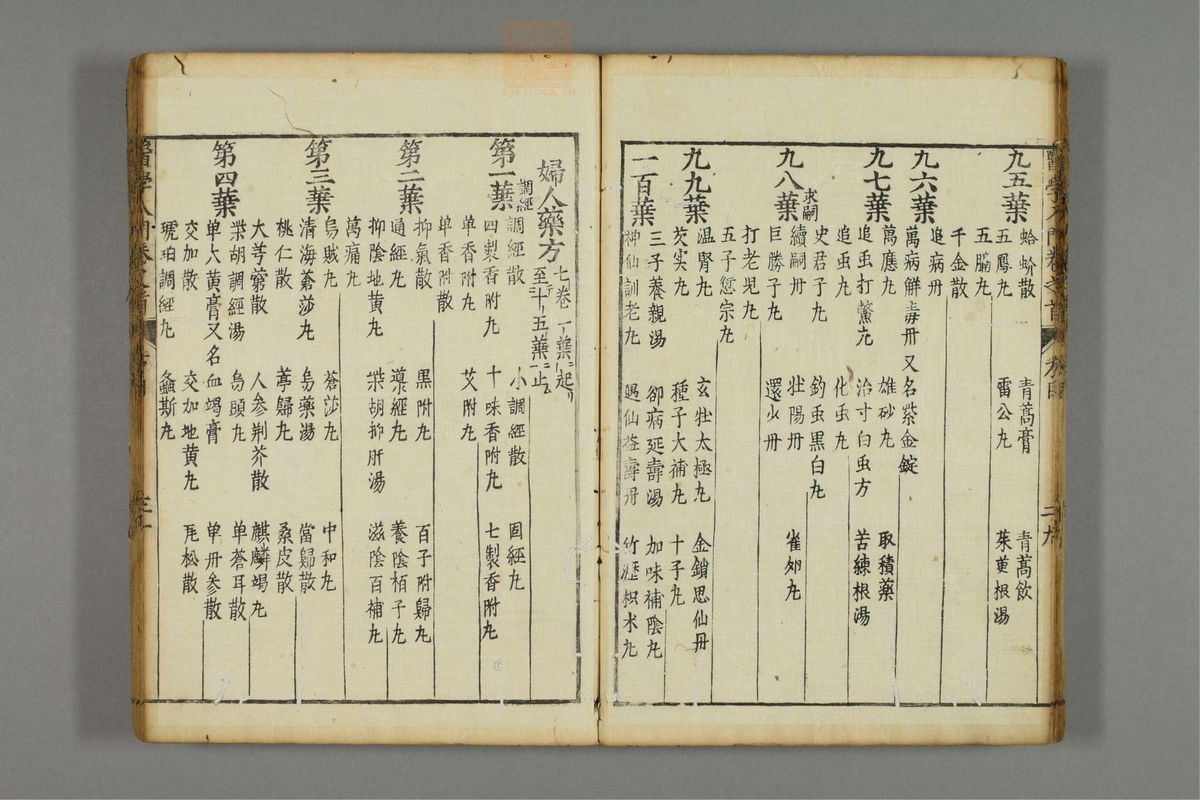 九五葉
蛤蚧散 青蒿膏 青蒿飲
五鳳九 雷公九 茱萸根湯
五膈九
千金散
九六葉
追病丹
萬病解毒丹又名紫金錠
九七葉
萬應九 雄砂九 取積藥
追虫打鱉九 治寸白虫方 苦練根湯
追虫九 化虫九
史君子九 鈎虫黑白九
九八葉 求嗣
續嗣丹 壯陽丹 雀卵九
巨勝子九 還少丹
打老児九
五子衍宗九
九九葉
溫腎九 玄牡太極九 金鎖思仙丹
芡实九 種子大補九 十子九
一百葉
三子養親湯 卻病延壽湯 加味補陰九
神仙訓老九 遇仙益壽丹 竹瀝枳术九
婦人藥方 七卷一葉起至十五葉止
第一葉 調經
調經散 小調經散 固經九
四製香附九 十味香附九 七製香附九
单香附九 艾附九
单香附散
第二葉
抑氣散 黑附九 百子附歸九
通經九 導經九 養陰栢子九
抑陰地黃九 柴胡抑肝湯 滋陰百補九
萬痛九
第三葉
烏賊九 蒼莎九 中和九
清海蒼莎九 烏藥湯 當歸散
桃仁散 葶歸九 桑皮散
大芎藭散 人参荆芥散 麒麟竭九
第四葉
柴胡調經湯 烏頭九 单蒼耳散
单大黃膏又名血竭膏 单丹参散
交加散 交加地黃九 瓦松散
琥珀調經九 螽斯九